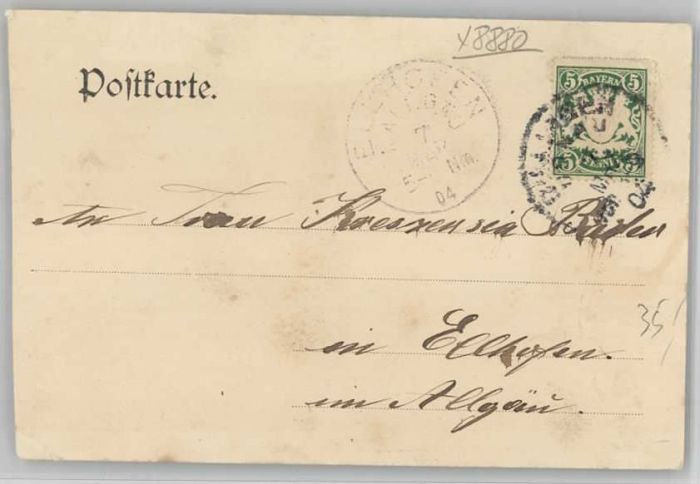 x8880
Postkarte.
5 BAYERN 5
7
04
04
An Frau Kreszensia
in Ellhofen.
im Allgäu.
35/